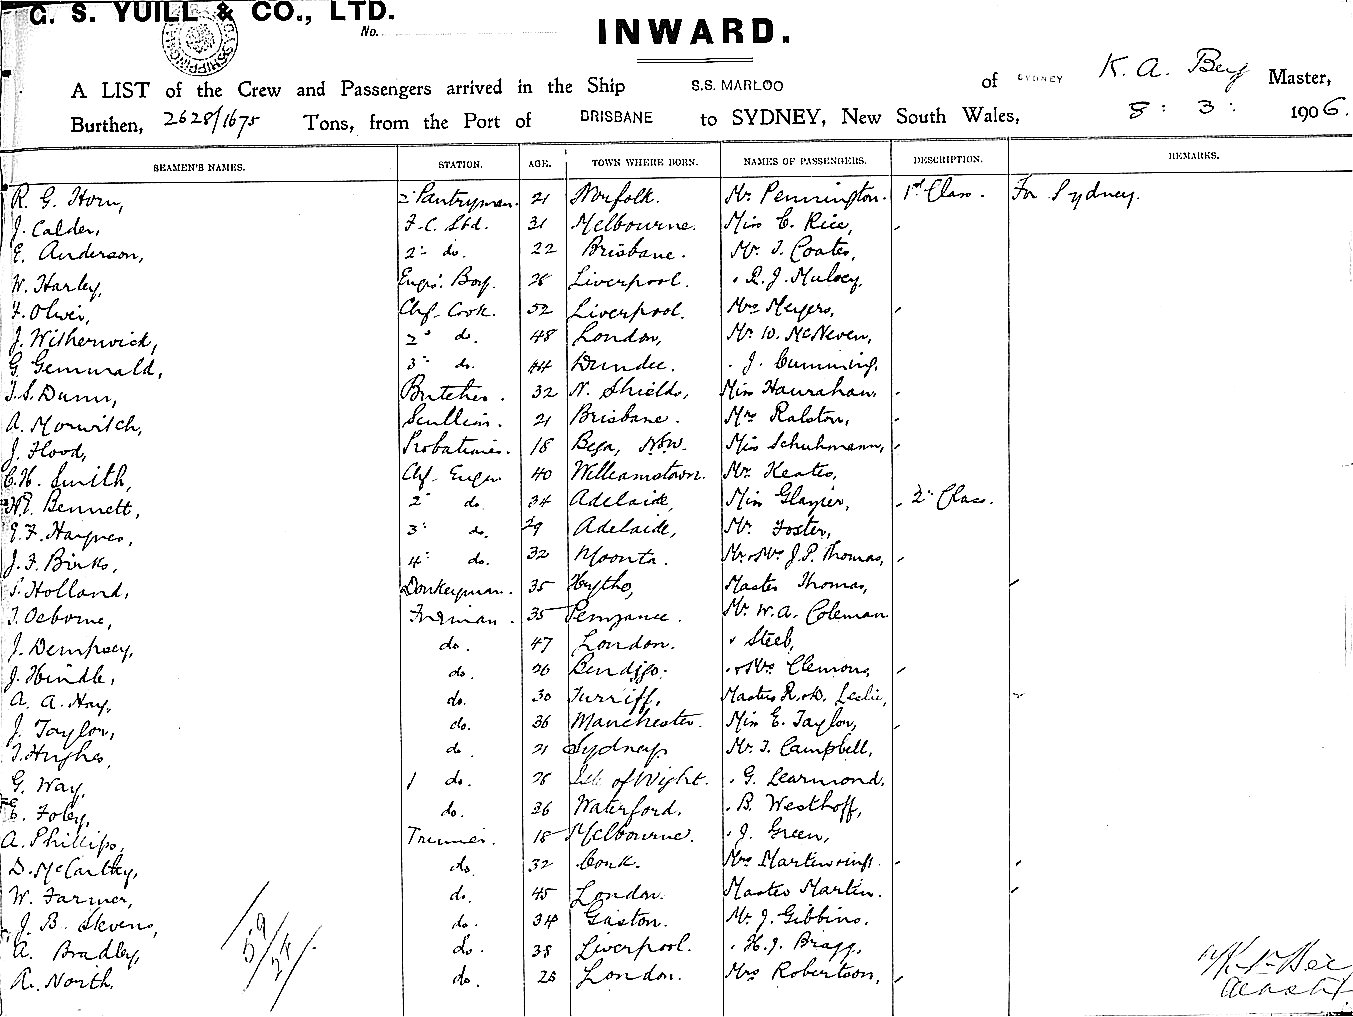 G. S. YUILL & CO., LTD.
No.
INWARD.
A LIST of the Crew and Passengers arrived in the Ship S.S. MARLOO of SYDNEY K. A. Bey Master,
Burthen, 2628/1675 Tons, from the Port of BRISBANE to SYDNEY, New South Wales, 8 : 3 : 1906.
SEAMEN'S NAMES. STATION. AGE. TOWN WHERE BORN. NAMES OF PASSENGERS. DESCRIPTION. REMARKS.
R. G. Horn, 2" Pantryman. 21 Norfolk. Mr. Pennington. 1st Class. For Sydney.
J. Calder, F.C. Std. 31 Melbourne. Miss C. Rice,
E. Anderson, 2" do. 22 Brisbane. Mr. T. Coates,
W. Harley, Engrs. Boy. Liverpool. " R. J. Mulcey,
F. Oliver, Chf. Cook. 52 Liverpool. Mrs Meyers,
J. Witherwick, 2" do. 48 London, Mr. W. McNeven,
G. Gemmald, 3" do. 44 Dundee. " J. Cumming,
T.S. Dunn, Butcher. 32 N. Shields, Miss Hanrahan,
A. Morwitch, Scullion. 21 Brisbane. Mrs Ralston,
J. Flood, Probationer. 18 Bega, NSW. Miss Schuhmann,
C.H. Smith, Chf. Engr. 40 Williamstown. Mr. Keates,
W.E. Bennett, 2" do. 34 Adelaide, Miss Glazier, 2" Class.
E.F. Haynes, 3" do. 29 Adelaide, Mr. Foster,
J. F. Birks, 4" do. 32 Moonta. Mr. & Mrs J.P. Thomas,
S. Holland, Donkeyman. 35 Hythe, Master Thomas,
T. Osborne, Fireman. 35 Penzance. Mr. W. A. Coleman
J. Dempsey, do. 47 London. " Steel,
J. Hindle, do. 26 Bendigo. " & Mrs Clemons,
A. A. Hay, do. 30 Turriff, Masters R. & D. Leslie,
J. Taylor, do. 36 Manchester. Miss E. Taylor,
T. Hughes, do 21 Sydney. Mr. T. Campbell,
G. Way, 1 do. 28 Isle of Wight. " G. Learmond,
E. Foley, do. 36 Waterford. " B. Westhoff,
A. Phillips, Trimmer. 18 Melbourne. " J. Green,
D. McCarthy, do. 32 Cork. Mrs
W. Farmer, do. 45 London. Master Martin.
J. B. Stevens, do. 34 Gaston. Mr. J. Gibbins.
A. Bradley, do. 38 Liverpool. " H. J. Bragg,
R. North. do. 28 London. Mrs Robertson,
59/24/